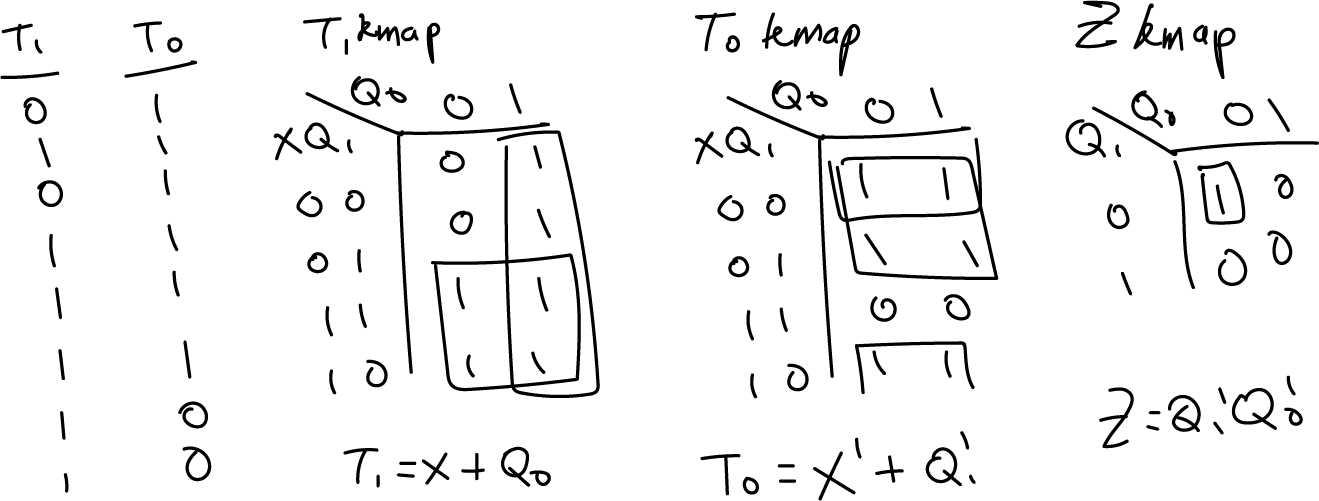 T₁ T₀
0 1
1 1
0 1
1 1
1 1
1 1
1 0
1 0
T₁ kmap
Q₀ 0 1
XQ₁
00 0 1
01 0 1
11 1 1
10 1 1
T₁ = X + Q₀
T₀ kmap
Q₀ 0 1
XQ₁
00 1 1
01 1 1
11 0 0
10 1 1
T₀ = X' + Q₁'
Z kmap
Q₀ 0 1
Q₁
0 1 0
1 0 0
Z = Q₁'Q₀'